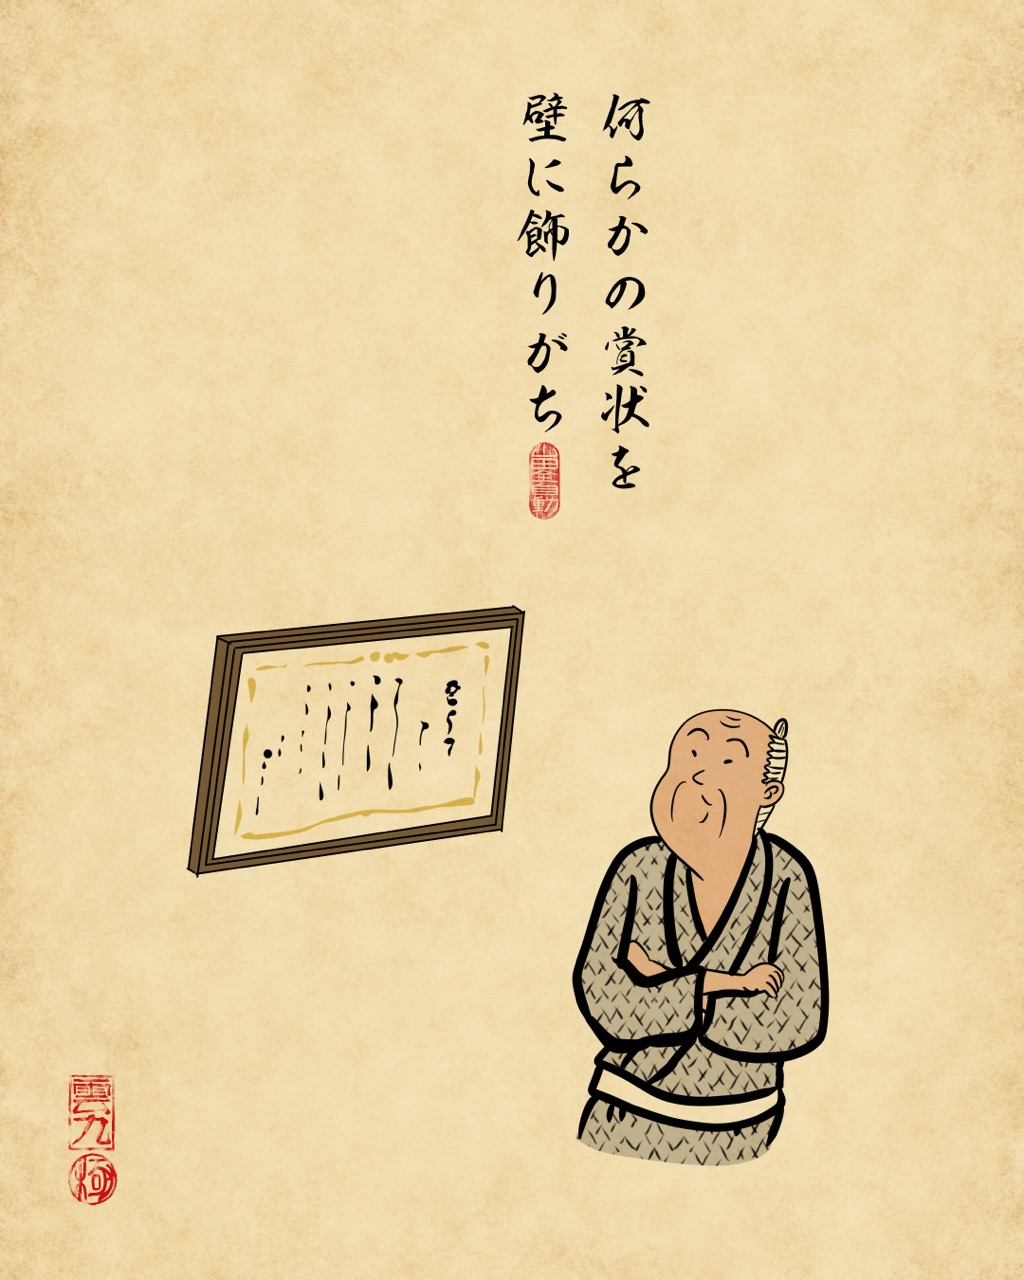 何らかの賞状を
壁に飾りがち